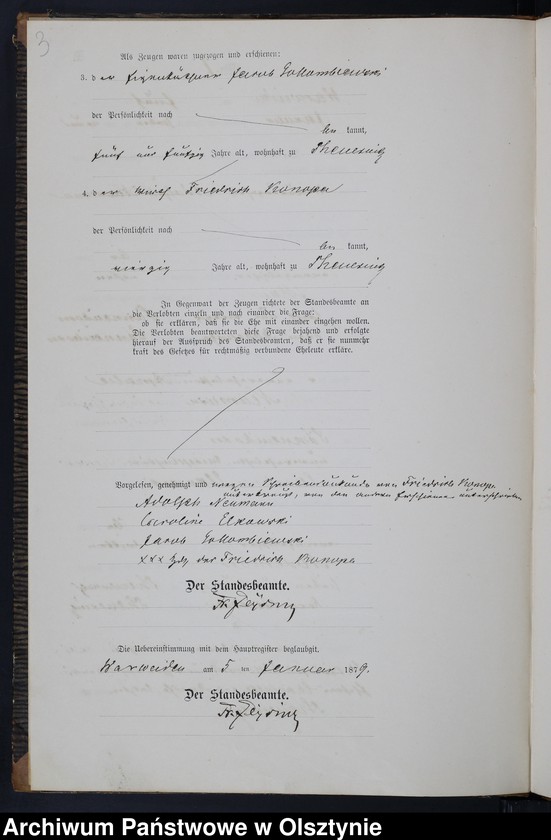 3
Als Zeugen waren zugezogen und erschienen:
3. der Eigenkäthner Jacob Gollombiewski
der Persönlichkeit nach
be kannt,
fünf und fünfzig Jahre alt, wohnhaft zu
4. der Wirth Friedrich Konopa
der Persönlichkeit nach
be kannt,
vierzig Jahre alt, wohnhaft zu
In Gegenwart der Zeugen richtete der Standesbeamte an
die Verlobten einzeln und nach einander die Frage:
ob sie erklären, daß sie die Ehe mit einander eingehen wollen.
Die Verlobten beantworteten diese Frage bejahend und erfolgte
hierauf der Ausspruch des Standesbeamten, daß er sie nunmehr
kraft des Gesetzes für rechtmäßig verbundene Eheleute erkläre.
Vorgelesen, genehmigt und wegen Schreibensunkunde von Friedrich Konopa
unterkreuzt, von den andern Erschienenen unterschrieben
Adolph Neumann
Caroline Elkowski
Jacob Gollombiewski
xxx Hdz. des Friedrich Konopa
Der Standesbeamte.
Die Uebereinstimmung mit dem Hauptregister beglaubigt.
Warweiden am 5 ten Januar 1879.
Der Standesbeamte.
Archiwum Państwowe w Olsztynie